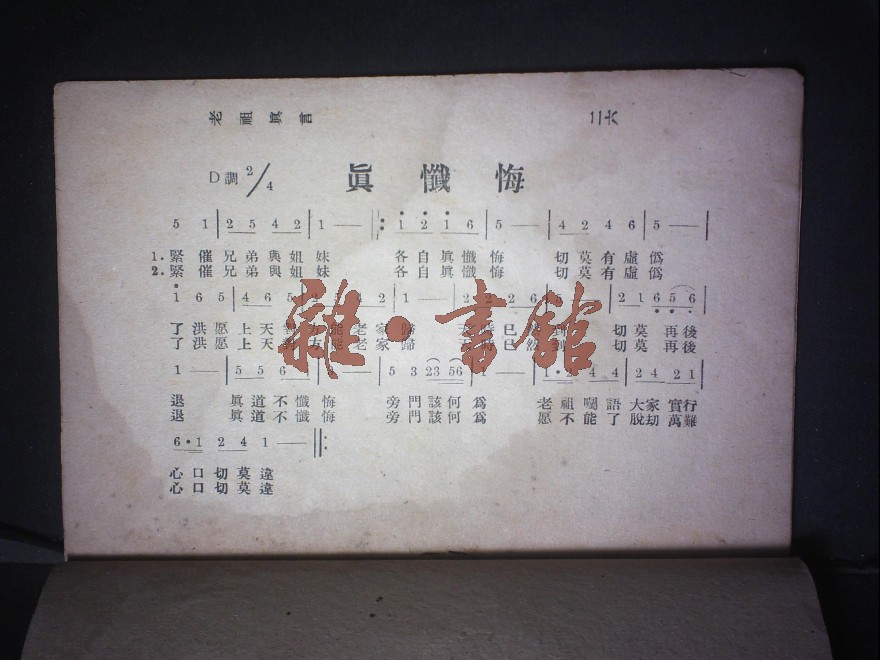 老祖眞言 二六
D調 2/4 眞懺悔
5 1 | 2 5 4 2 | 1 — ‖: 1 2 1 6 | 5 — | 4 2 4 6 | 5 — |
1. 緊催兄弟與姐妹 各自眞懺悔 切莫有虛僞
2. 緊催兄弟與姐妹 各自眞懺悔 切莫有虛僞
1 6 5 | 4 6 5 4 2 | 1 — 2 2 2 6 2 1 6 5 6
了洪愿上天對方能老家歸 已 切莫再後
了洪愿上天對方能老家歸 已然 切莫再後
1 — | 5 5 6 — | 5 3 23 56 | 1 — | 1 • 2 4 4 | 2 4 2 1
退 眞道不懺悔 旁門該何爲 老祖囑語大家實行
退 眞道不懺悔 旁門該何爲 愿不能了脫劫萬難
6 • 1 2 4 1 — :‖
心口切莫違
心口切莫違
雜•書館